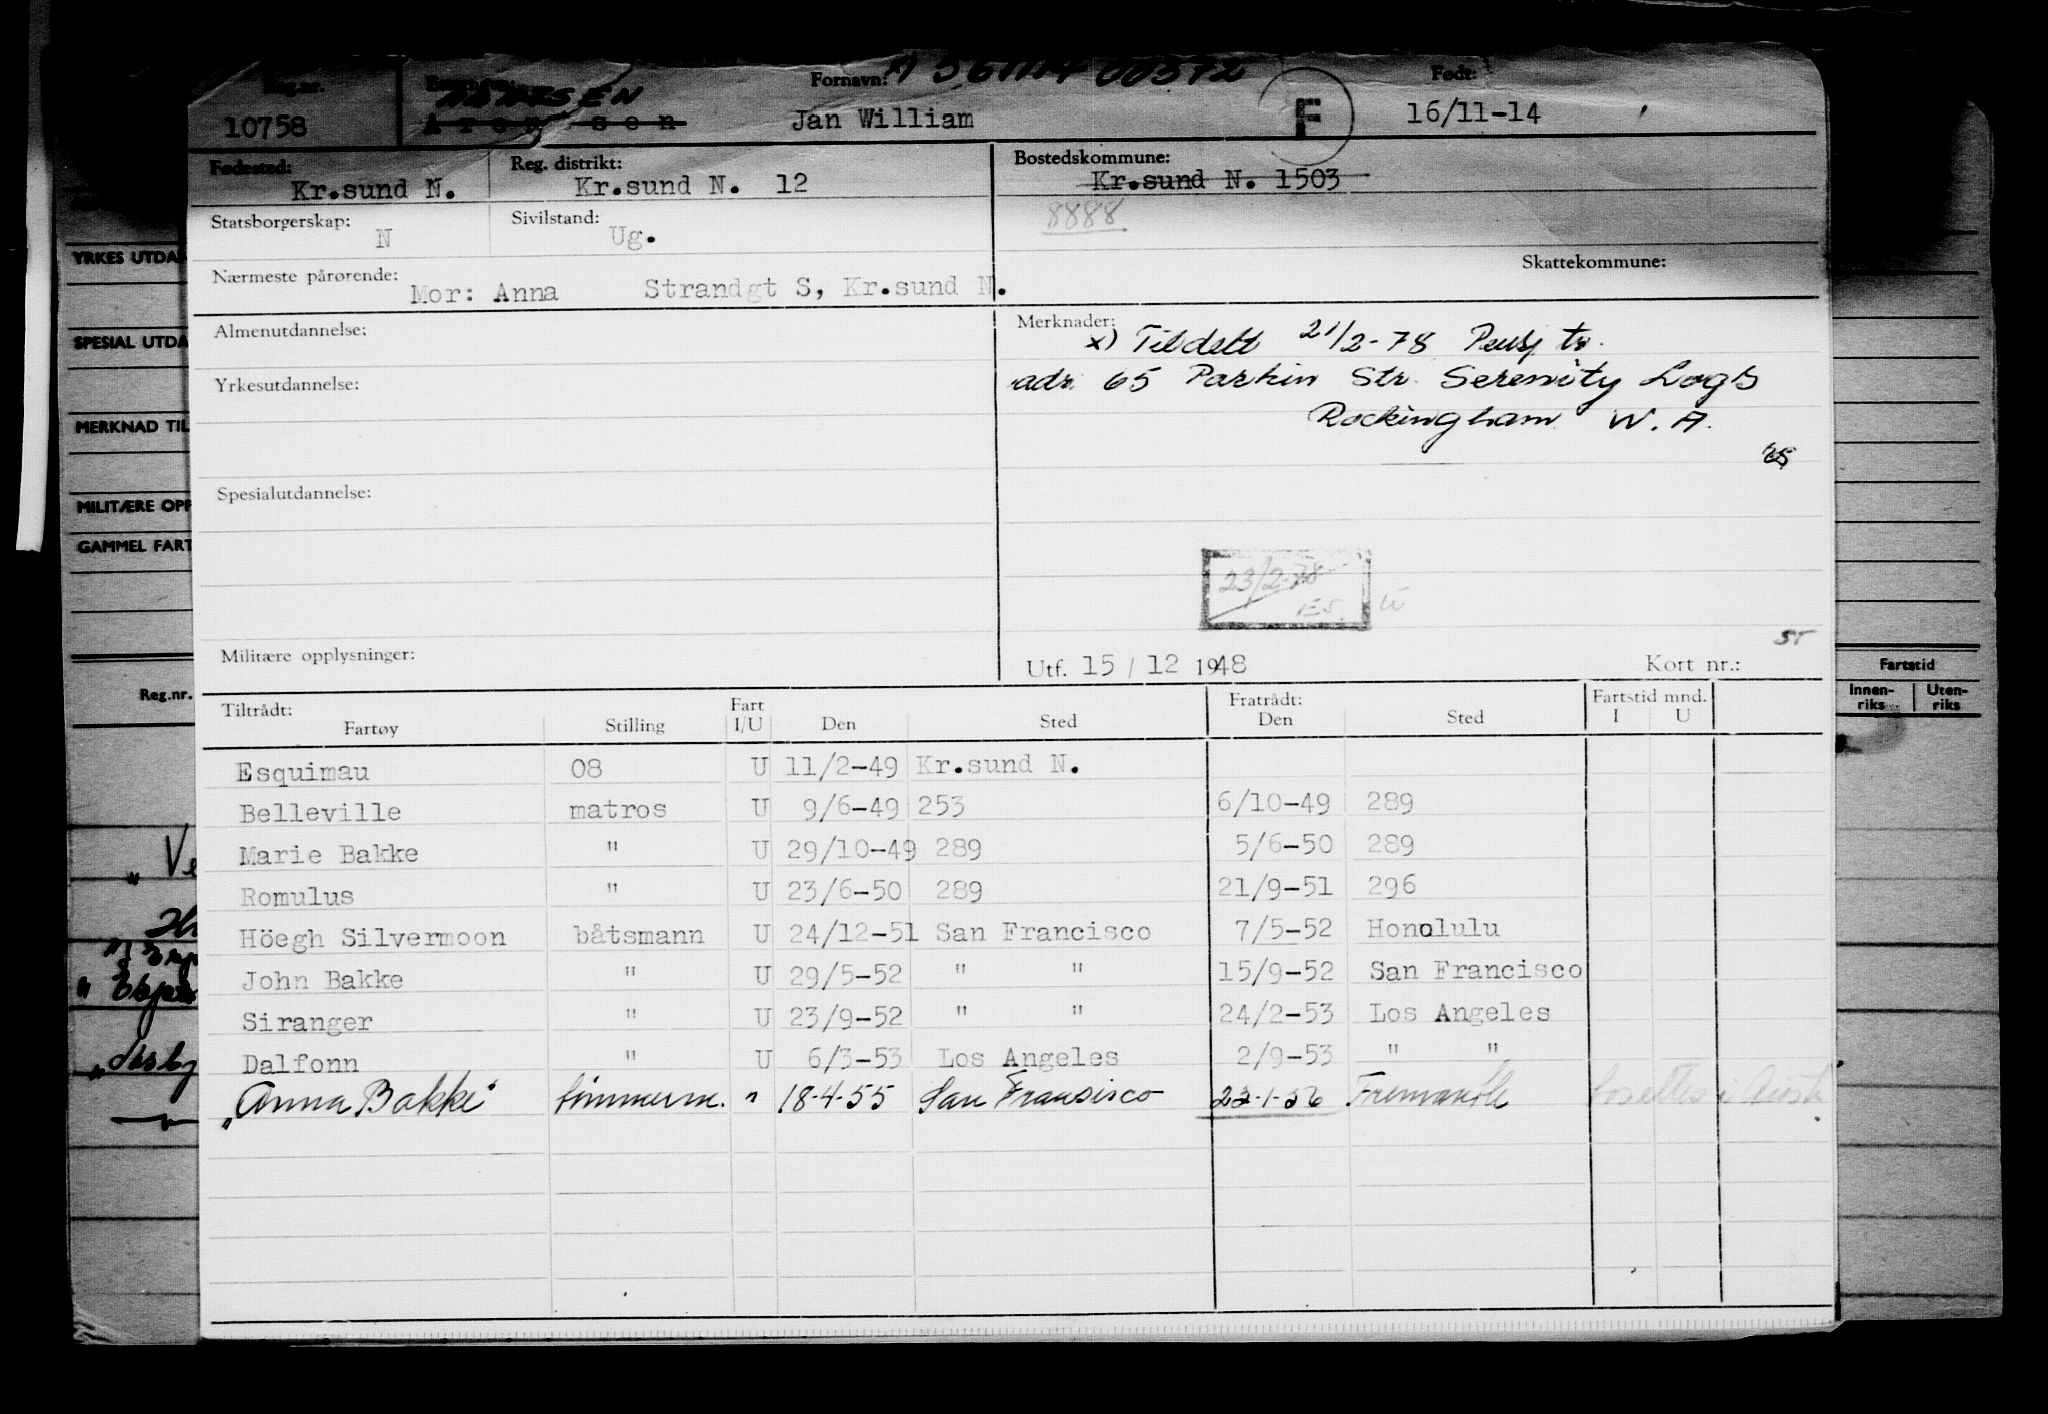 Reg.nr.
10758
Fornavn:
Jan William
F
Født:
16/11-14
Fødested:
Kr.sund N.
Reg. distrikt:
Kr.sund N. 12
Bostedskommune:
Kr.sund N. 1503
8888
Statsborgerskap:
N
Sivilstand:
Ug.
Skattekommune:
Nærmeste pårørende:
Mor: Anna Strandgt S, Kr.sund N.
Almenutdannelse:
Yrkesutdannelse:
Spesialutdannelse:
Militære opplysninger:
Merknader:
x) Tildelt 21/2-78
adr. 65 Parkin Str. Serenity
Rockingham W. A.
23/2-78
ES
Utf. 15 / 12 1948 Kort nr.:
Tiltrådt: Fart Fratrådt: Fartstid mnd.
Fartøy Stilling I/U Den Sted Den Sted I U
Esquimau 08 U 11/2-49 Kr.sund N.
Belleville matros U 9/6-49 253 6/10-49 289
Marie Bakke " U 29/10-49 289 5/6-50 289
Romulus " U 23/6-50 289 21/9-51 296
Höegh Silvermoon båtsmann U 24/12-51 San Francisco 7/5-52 Honolulu
John Bakke " U 29/5-52 " " 15/9-52 San Francisco
Siranger " U 23/9-52 " " 24/2-53 Los Angeles
Dalfonn " U 6/3-53 Los Angeles 2/9-53 " "
"Anna Bakke" tømmerm. " 18-4-55 San Fransisco 22-1-56 Fremantle
YRKES UTDA
SPESIAL UTDA
MERKNAD TIL
MILITÆRE OPP
GAMMEL FART
Reg.nr.
Fartstid
Innen-
riks
Uten-
riks